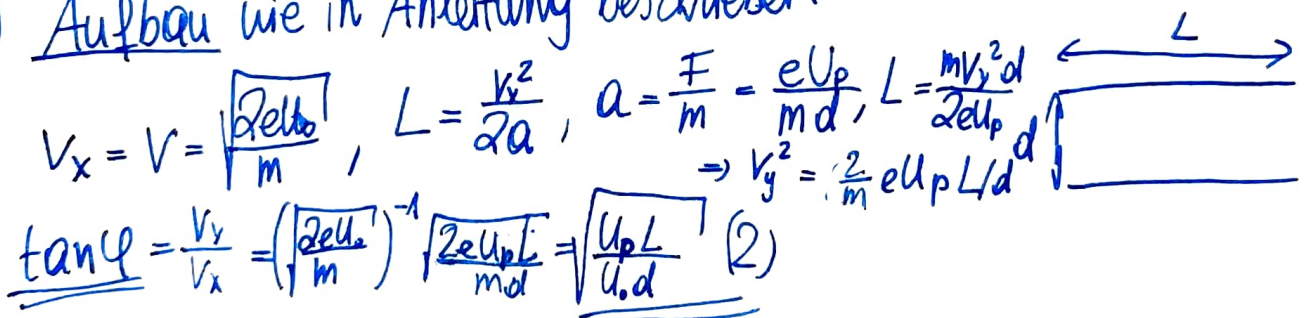 Aufbau wie in Anleitung beschrieben
L
V_x = V = √(2eU_0/m), L = V_y²/2a, a = F/m = eU_p/md, L = mV_y²d/2eU_p
d
⇒ V_y² = 2/m eU_p L/d
tanφ = V_y/V_x = (√(2eU_0/m))^-1 √(2eU_pL/md) = √(U_pL/U_0d) (2)